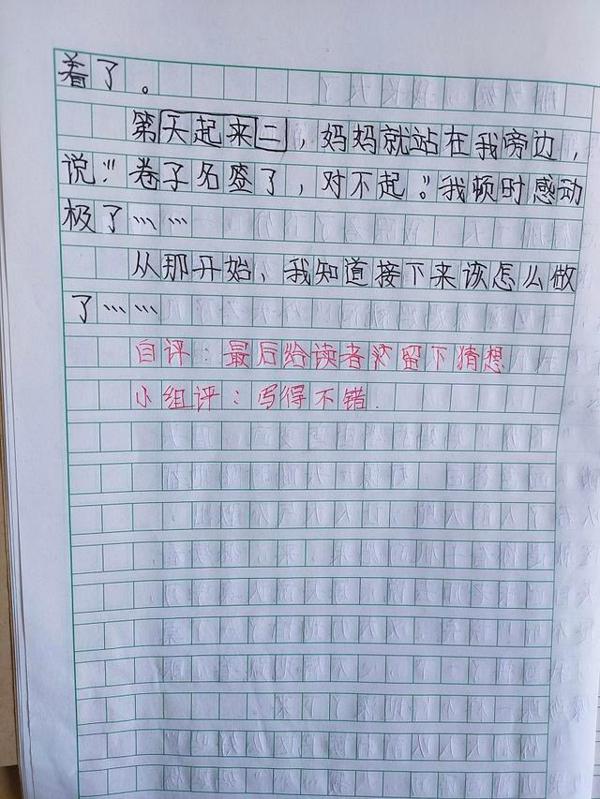 着了。
第天起来二，妈妈就站在我旁边，
说：“卷子名签了，对不起。”我顿时感动
极了……
从那开始，我知道接下来该怎么做
了……
自评：最后给读者留下猜想
小组评：写得不错.